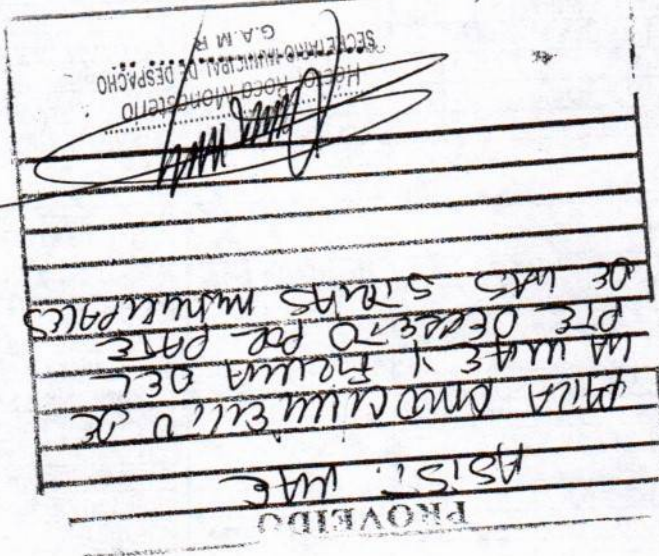 PROVEIDO
ASIST. MAE
PARA CONOCIMIENTO DE
LA MAE Y FIRMA DEL
PTE DECRETO POR PARTE
DE LAS STRIAS MUNICIPALES
Héctor Roca Monasterio
SECRETARIO MUNICIPAL DE DESPACHO
G.A.M.R